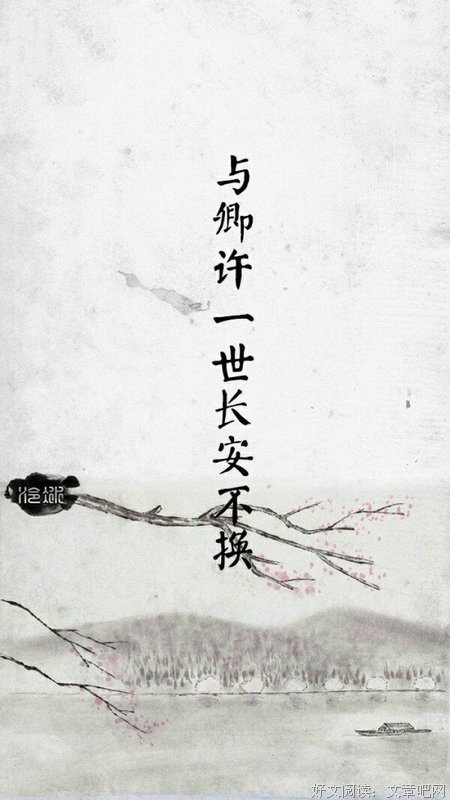 与卿许一世长安不换
好文阅读：文章吧网